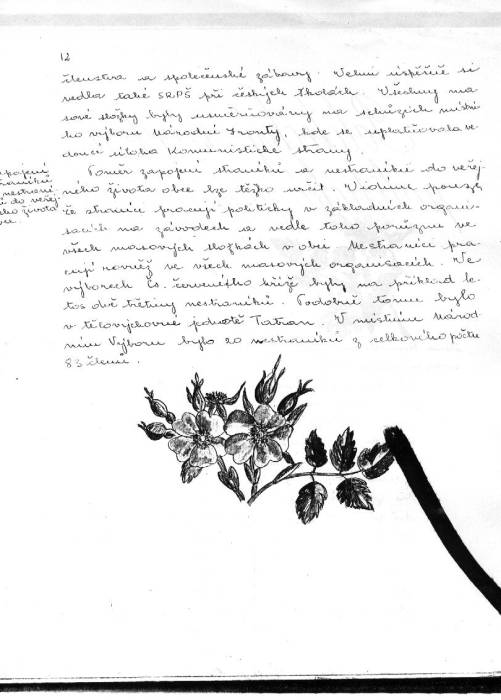 12
členstva a společenské zábavy. Velmi úspěšně si
vedla také SRPŠ při českých školách. Všechny ma
sové složky byly usměrňovány na schůzích místní
ho výboru Národní Fronty, kde se uplatňovala ve
doucí úloha Komunistické strany.
zapojení
straníků
a nestraní
ků do veřej
ného života
Poměr zapojení straníků a nestraníků do veřej
ného života obce lze těžko určit. Vidíme pouze,
že straníci pracují politicky v základních organi-
sacích na závodech a vedle toho porůznu ve
všech masových složkách v obci. Nestraníci pra
cují rovněž ve všech masových organisacích. Ve
výborech čs. červeného kříže byly na příklad le
tos dvě třetiny nestraníků. Podobně tomu bylo
v tělovýchovné jednotě Tatran. V místním Národ-
ním Výboru bylo 20 nestraníků z celkového počtu
83 členů.